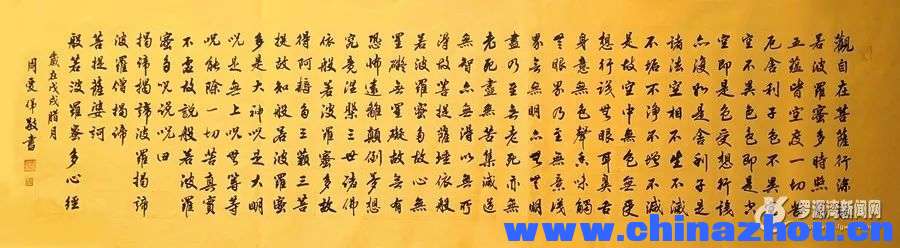 觀自在菩薩行深
若波羅蜜多時照
五蘊皆空度一切苦
厄舍利子色不異
空不異色色即是空
空即是色受想行識
亦復如是舍利子是
諸法空相不生不滅
不垢不淨不增不減
是故空中無色無受
想行識無眼耳鼻舌
身意無色聲香味觸
無眼界乃至無意識
界無無明亦無無明
盡乃至無老死亦無
老死盡無苦集滅道
無智亦無得以無所
得故菩提薩埵依般
若波羅蜜多故心無
罣礙無罣礙故無有
恐怖遠離顛倒夢想
究竟涅槃三世諸佛
依般若波羅蜜多故
得阿耨多羅三藐三菩
提故知般若波羅蜜
多是大神咒是大明
咒是無上咒是無等等
咒能除一切苦真實
不虛故說般若波羅
蜜多咒即說咒曰
揭諦揭諦波羅揭諦
波羅僧揭諦
菩提薩婆訶
般若波羅蜜多心經
歲在戊戌臘月
周愛佛敬書
罗源湾新闻网
www.chinazhou.cn